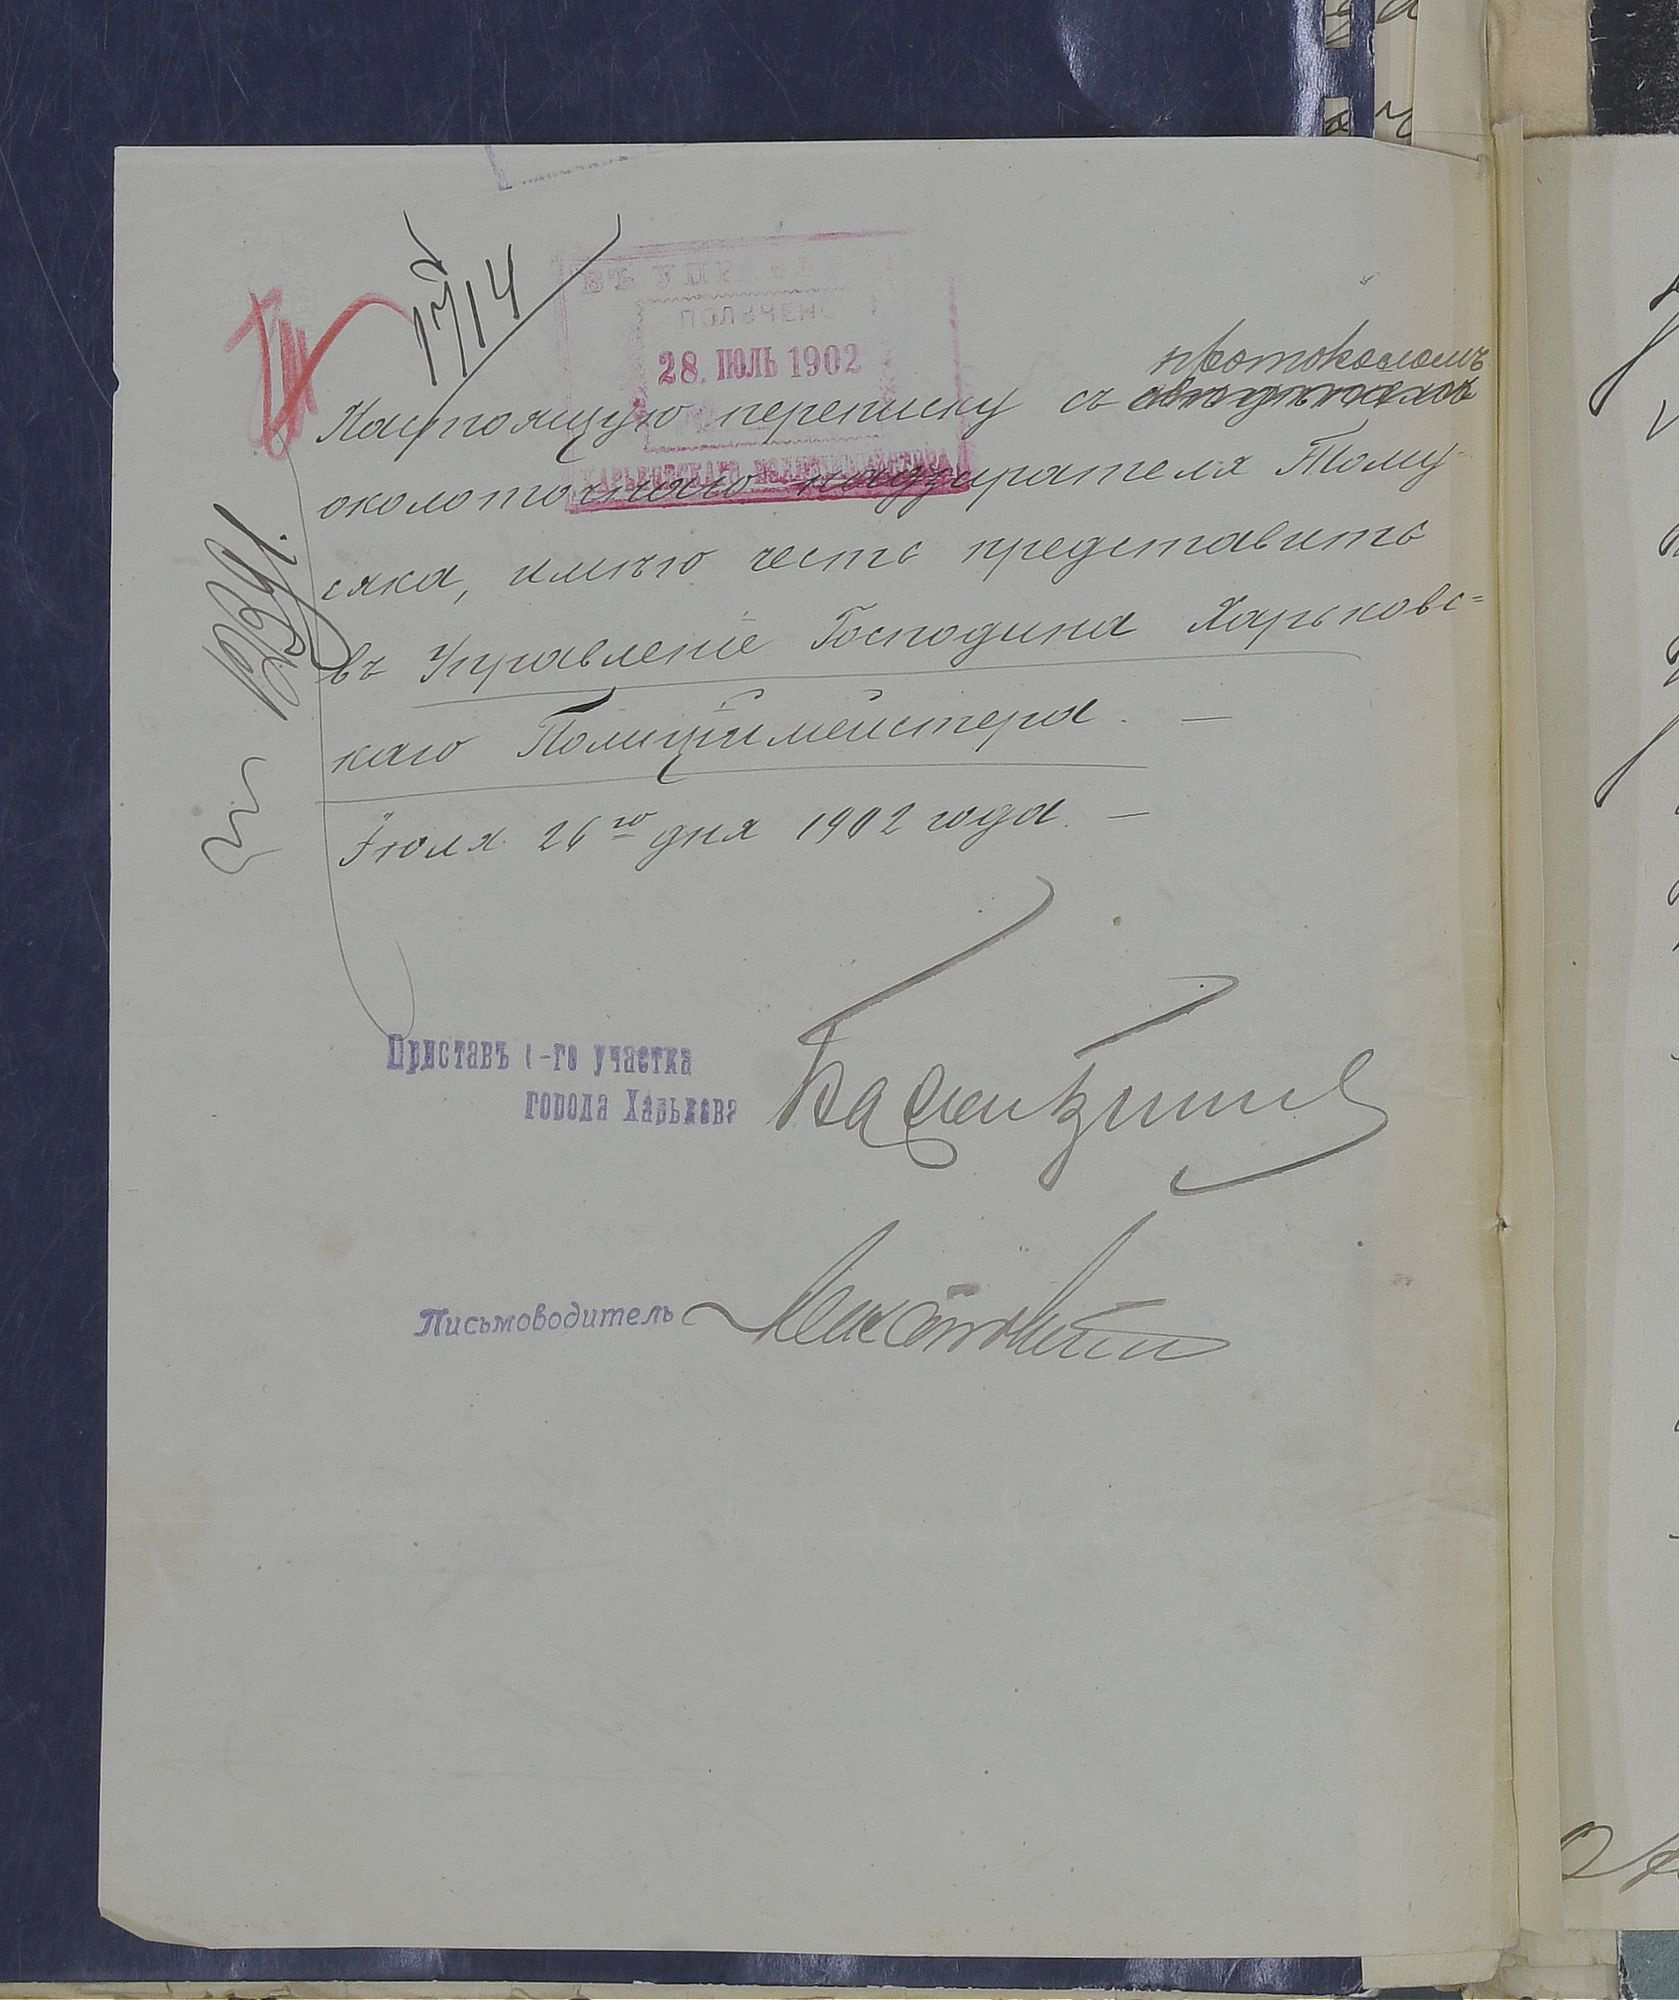 1714
ВЪ УПРАВЛ
ПОЛУЧЕНО
28. ІЮЛЬ 1902
ХАРЬКОВСКАГО ПОЛИЦІЙМЕЙСТЕРА
протоколомъ
Настоящую переписку съ
околоточнаго надзирателя Тому-
сяка, имѣю честь представить
въ Управленіе Господина Харьковс=
каго Полиціймейстера. —
Іюля 26го дня 1902 года. —
Приставъ 1-го участка
города Харькова
Письмоводитель